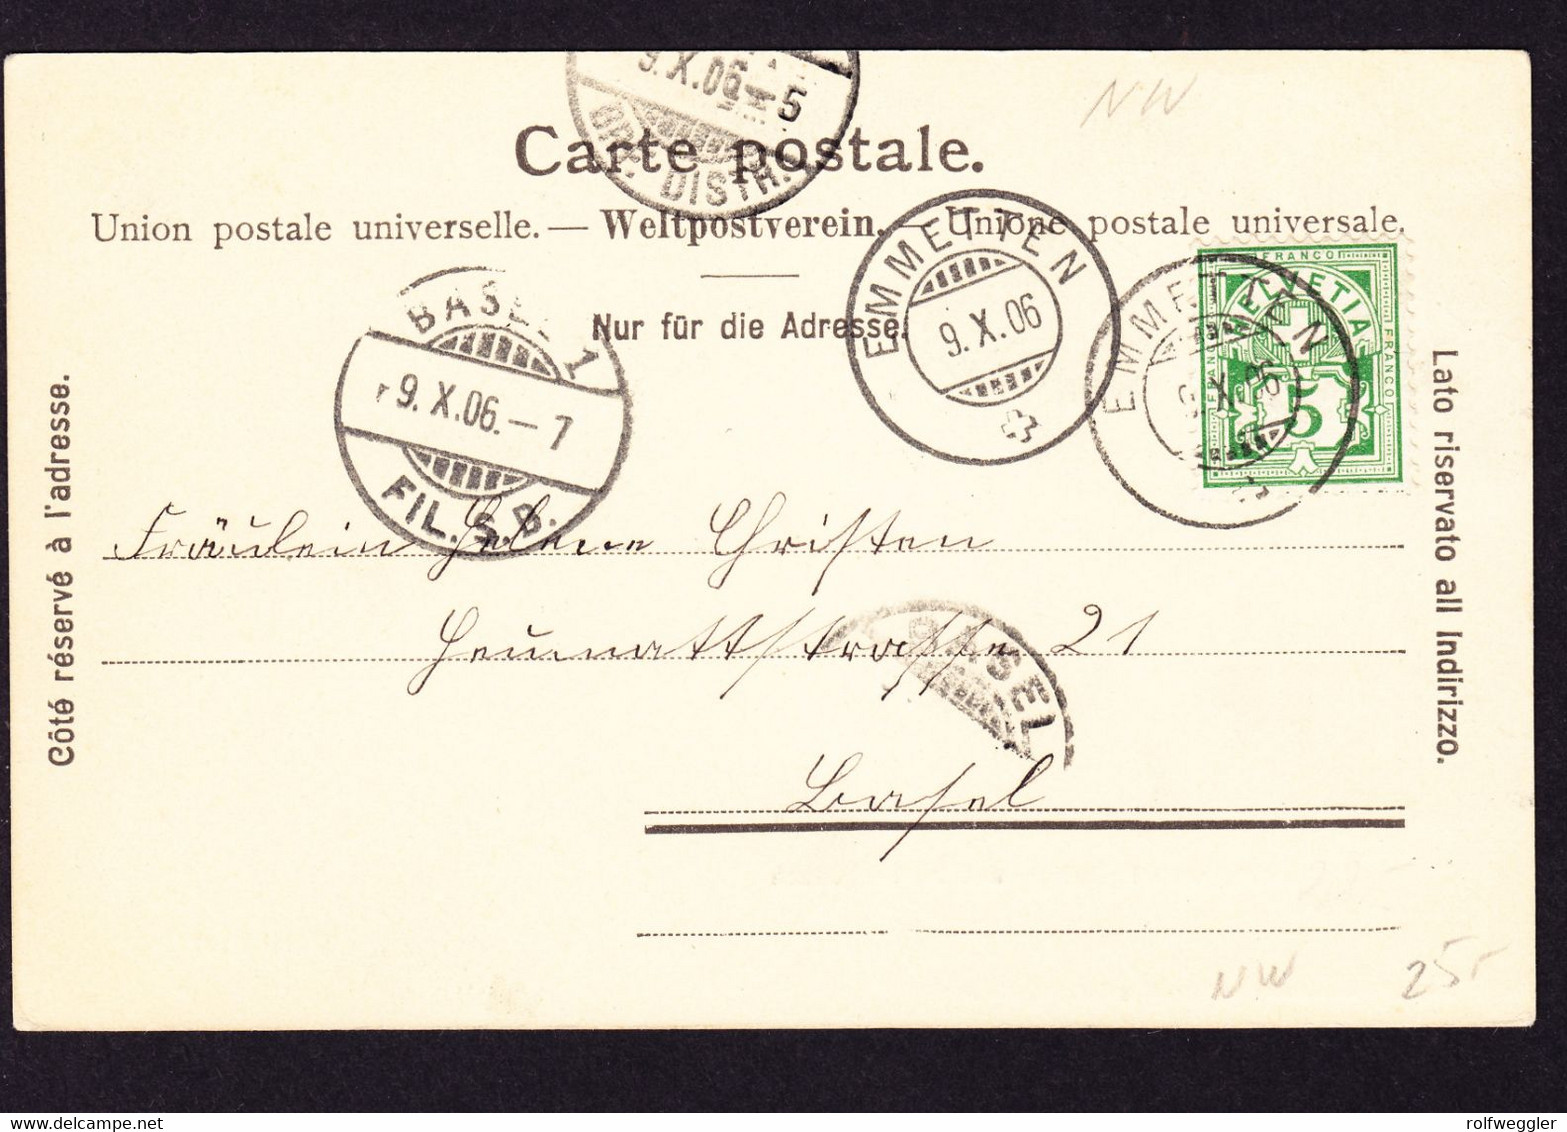 9.X.06 – 5
DISTR.
NW
Carte postale.
Union postale universelle. — Weltpostverein. — Unione postale universale.
Nur für die Adresse.
Côté réservé à l'adresse.
Lato riservato all Indirizzo.
BASEL 1
9.X.06. – 7
FIL. S.B.
EMMETTEN
9.X.06
EMMETTEN
9.X.06
FRANCO
HELVETIA
FRANCO
FRANCO
5
Fräulein Helene Christen
Heumattstrasse 21
BASEL
Basel
NW
25.-
delcampe.net
rolfweggler